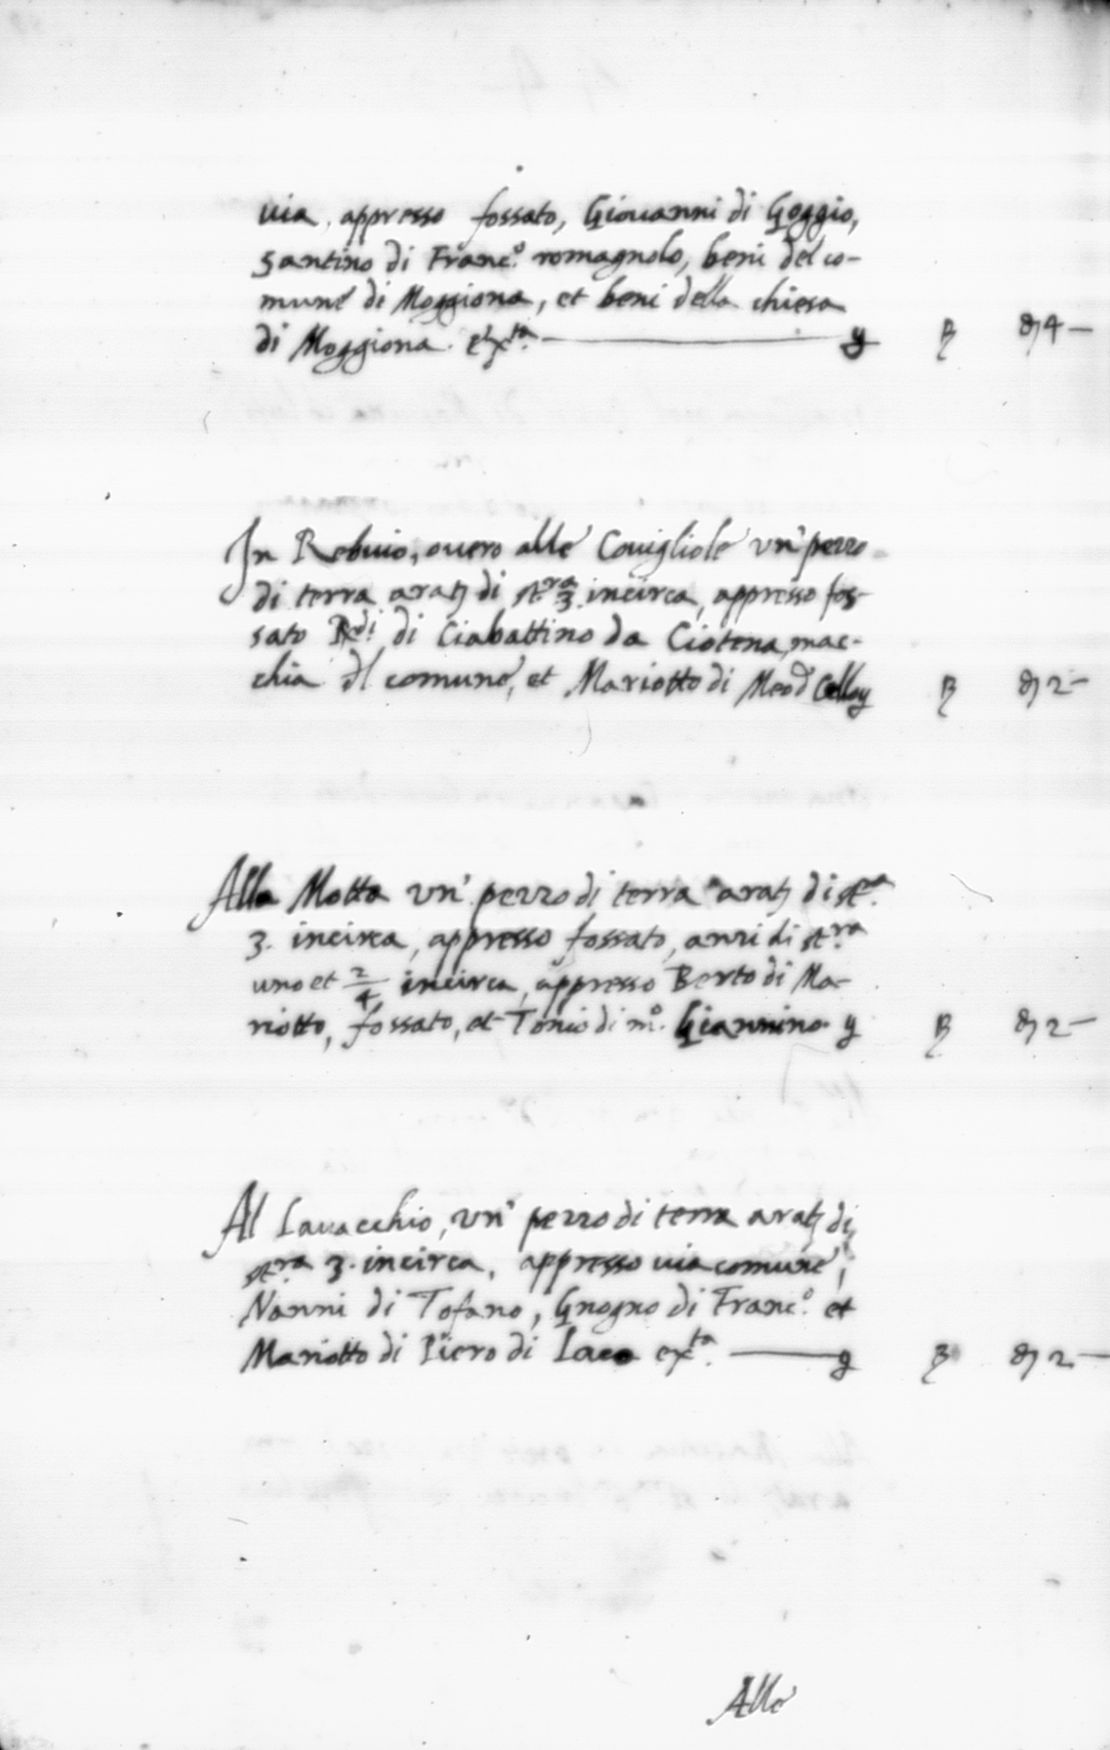 via appresso fossato, Giovanni di Goggio,
Santino di Franc.o romagnolo, beni del co-
mune di Moggiona, et beni della chiesa
di Moggiona. etx.ta — 4 —
In Rebuio, overo alle Covigliole un' pezzo
di terra arat di st.ra 3. incirca, appresso fos-
sato Redi di Ciabattino da Ciotena, mac-
chia dl comune, et Mariotto di Meo d 2 —
Alla Motta un' pezzo di terra arat di st.ra
3. incirca, appresso fossato, anzi di st.ra
uno et 2/4 incirca, appresso Berto di Ma-
riotto, fossato, et Tonio di m.o Giannino 2 —
Al Lavacchio, un' pezzo di terra arat di
st.ra 3. incirca, appresso via comune,
Nanni di Tofano, Gnogno di Franc.o et
Mariotto di Piero di Iaco ex.ta — 2 —
Alle